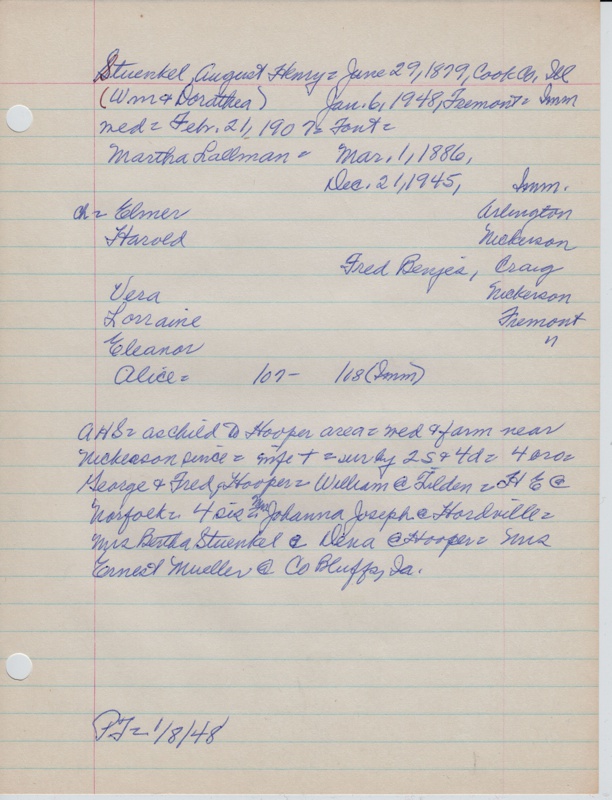 Stuenkel, August Henry = June 29, 1879, Cook Co, Ill
(Wm & Dorathea) Jan. 6, 1948, Fremont = Imm
med = Febr. 21, 1907 = Font =
Martha Lallman = Mar. 1, 1886,
Dec. 21, 1945, Imm.
ch = Elmer Arlington
Harold Nickerson
Fred Benjes, Craig
Vera Nickerson
Lorraine Fremont
Eleanor "
Alice = 107 - 108 (Imm)
AHS = as child to Hooper area = med & farm near
Nickerson since = wife † = sur by 2 S & 4 d = 4 bro =
George & Fred, Hooper = William @ Tilden = H E @
Norfolk = 4 sis = Mrs Johanna Joseph @ Hordville =
Mrs Bertha Stuenkel & Dena @ Hooper = Mrs
Ernest Mueller @ Co Bluffs, Ia.
FT = 1/8/48